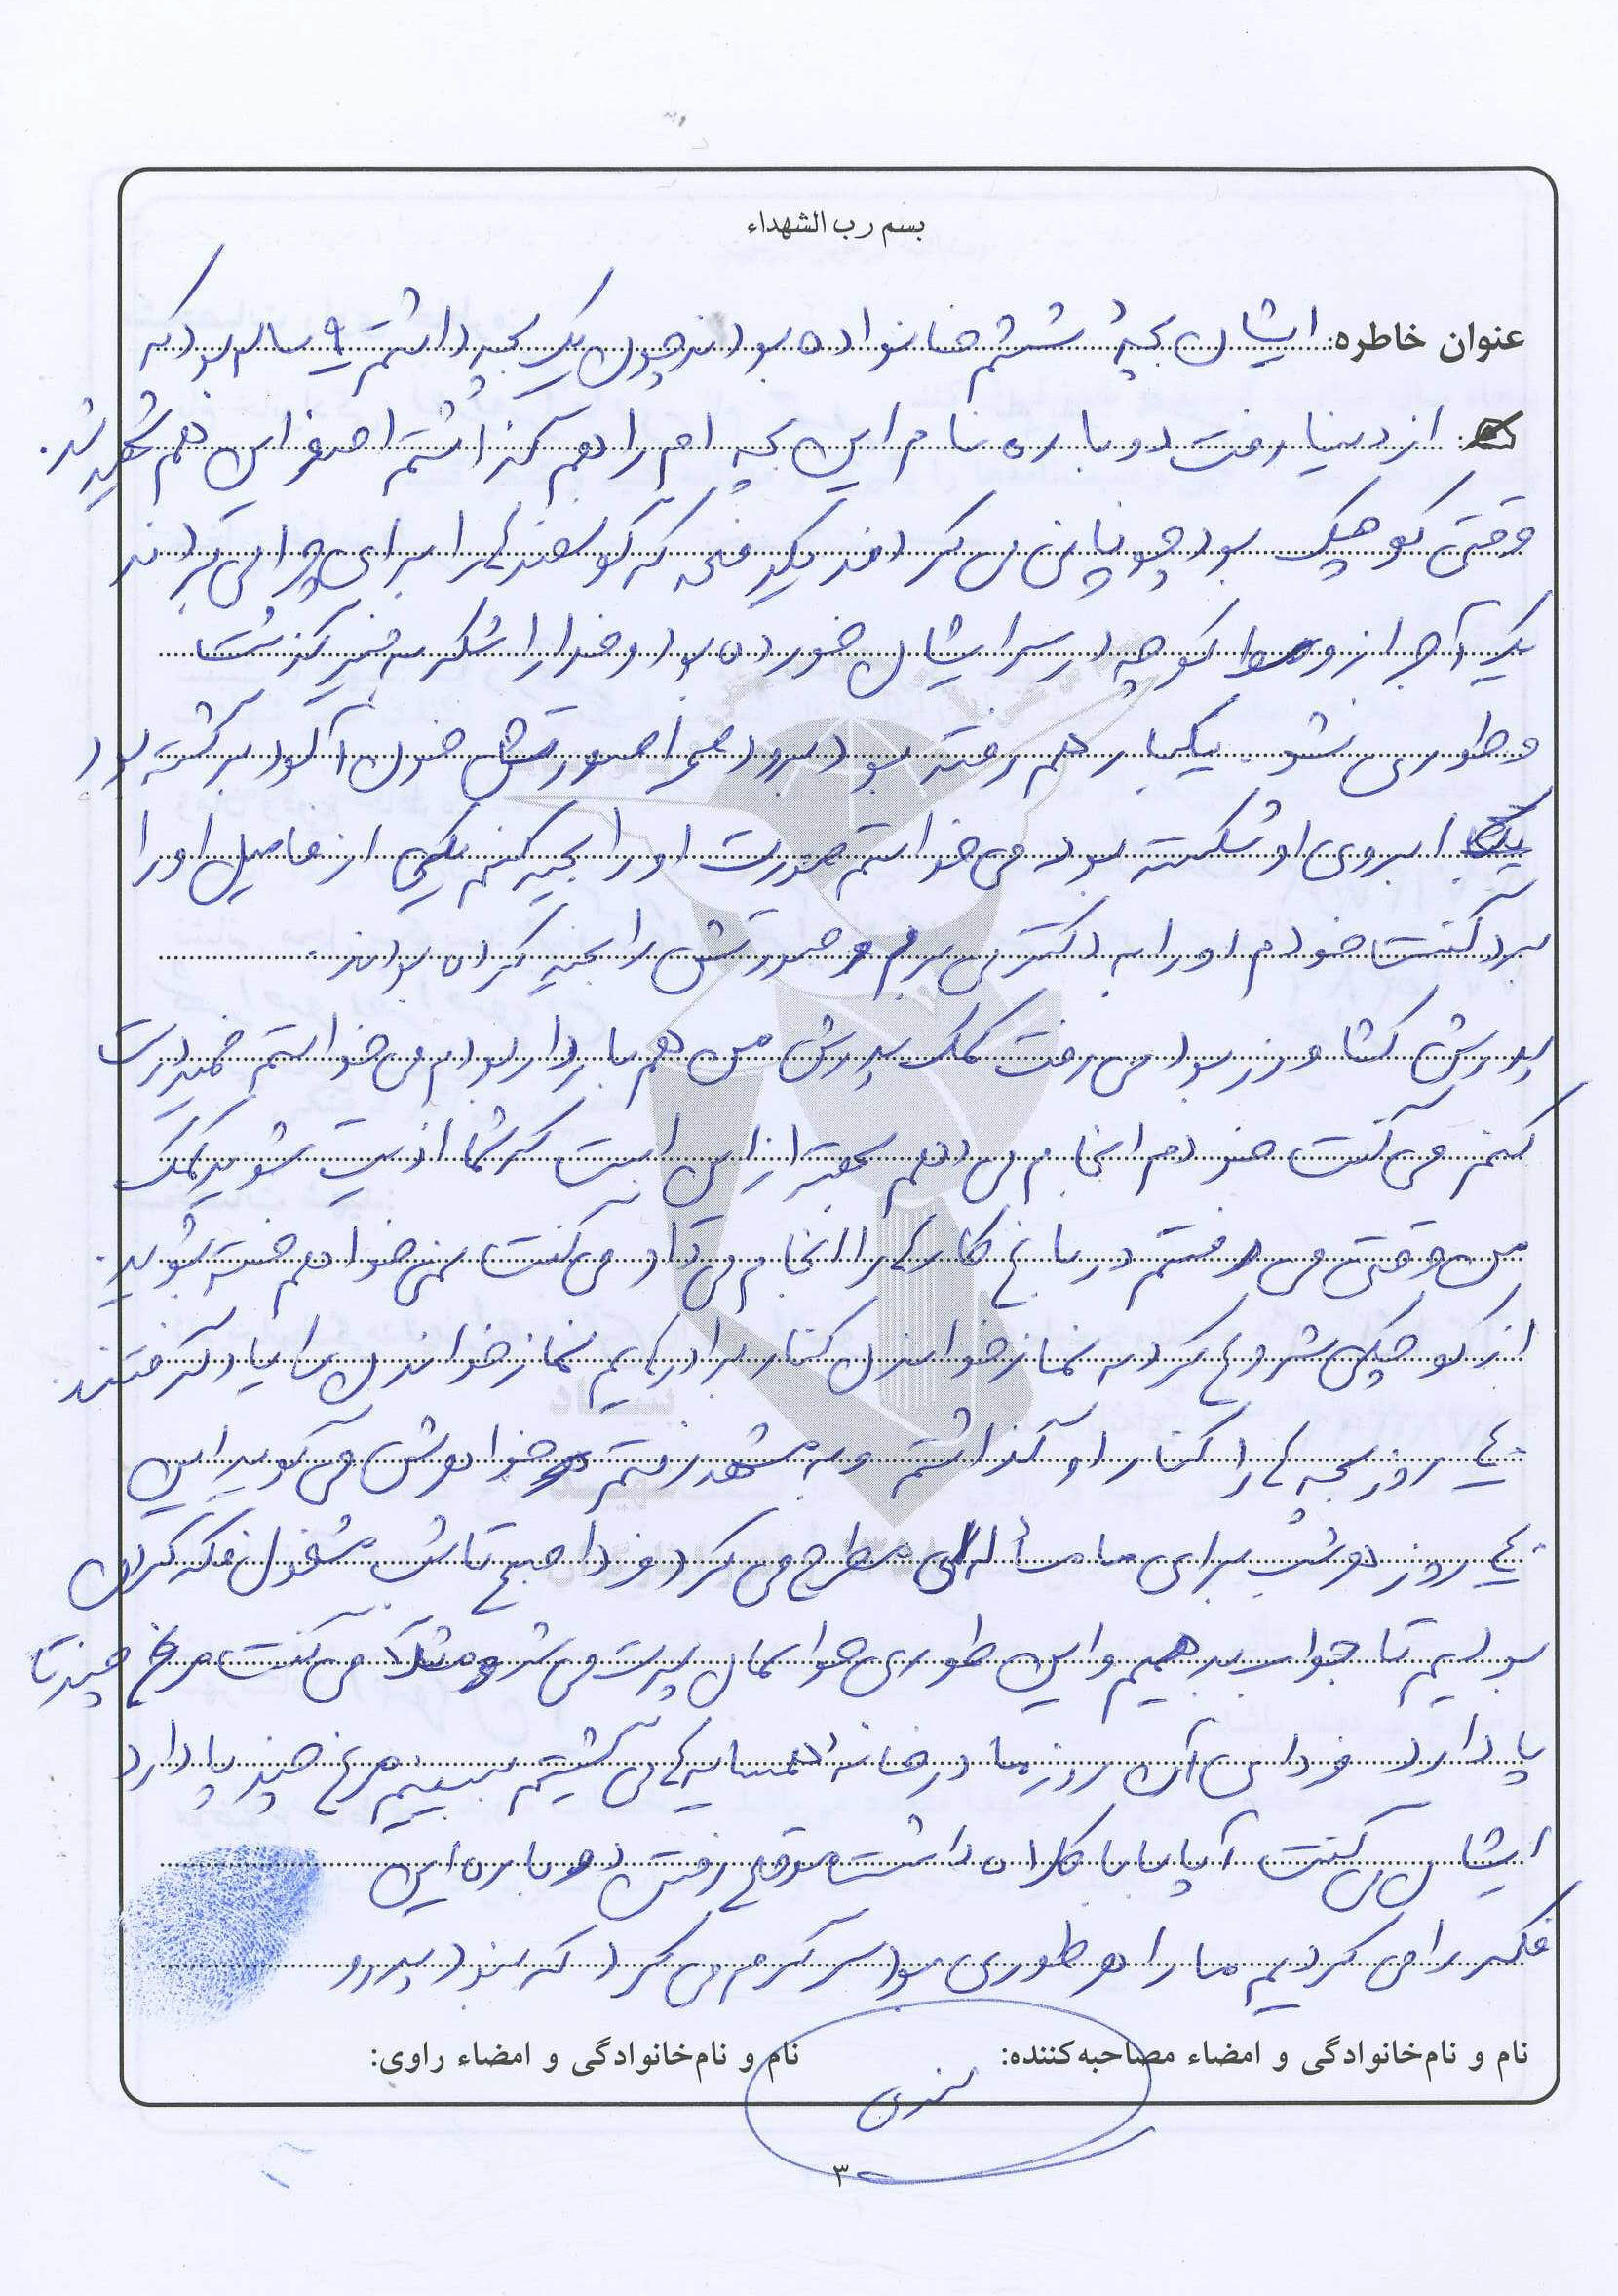 بسم رب الشهداء
عنوان خاطره: ایشان بچهٔ ششم خانواده بودند چون یک بچه داشتم ۹ ساله بود که
از دنیا رفت دوباره نام این بچه ام را هم گذاشتم اصغر این هم شهید شد.
وقتی کوچک بود چوپانی می کردند یکدفعه که گوسفندها را برای چرا می بردند
یک آجر از وسط کوچه در سر ایشان خورده بود و خدا را شکر به خیر گذشت
و طوری نشد. یکبار هم رفته بود برود صحرا صورتش خون آلود برگشته بود
ابروی او شکسته بود می خواستم صورت او را بخیه کنم یکی از فامیل او را
برد گفت خودم او را به دکتر می برم و صورتش را بخیه کرده بودند.
پدرش کشاورز بود می رفت کمک پدرش من هم باردار بودم می خواستم خمیر درست
کنم می گفت خودم انجام می دهم بهتر از این است که شما اذیت شوید کمک
من وقتی می رفتم در باغ کارها را انجام می داد و می گفت نمی خواهم خسته بشوید.
از کوچکی شروع کرد به نماز خواندن کنار برادرهایم نماز خواندن را یاد گرفتند.
۴۰ روز بچه ها را کنار او گذاشتم و به مشهد رفتم خواهرش می گوید این
۴۰ روز هر شب برای ما مسأله ای مطرح می کرد فردا صبح تا شب مشغول فکر کردن
بودیم تا جواب بدهیم و این طوری حواسمان پرت می شد و مثلاً می گفت مرغ چند تا
پا دارد فردای آن روز ما در خانهٔ همسایه ها می گشتیم ببینیم مرغ چند پا دارد
ایشان می گفت آیا بابا کلاه داشت موقع رفتن دوباره این
فکر را می کردیم ما را هر طوری بود سرگرم می کرد که نبود پدر و
نام و نام‌خانوادگی و امضاء مصاحبه‌کننده:
نام و نام‌خانوادگی و امضاء راوی:
۳